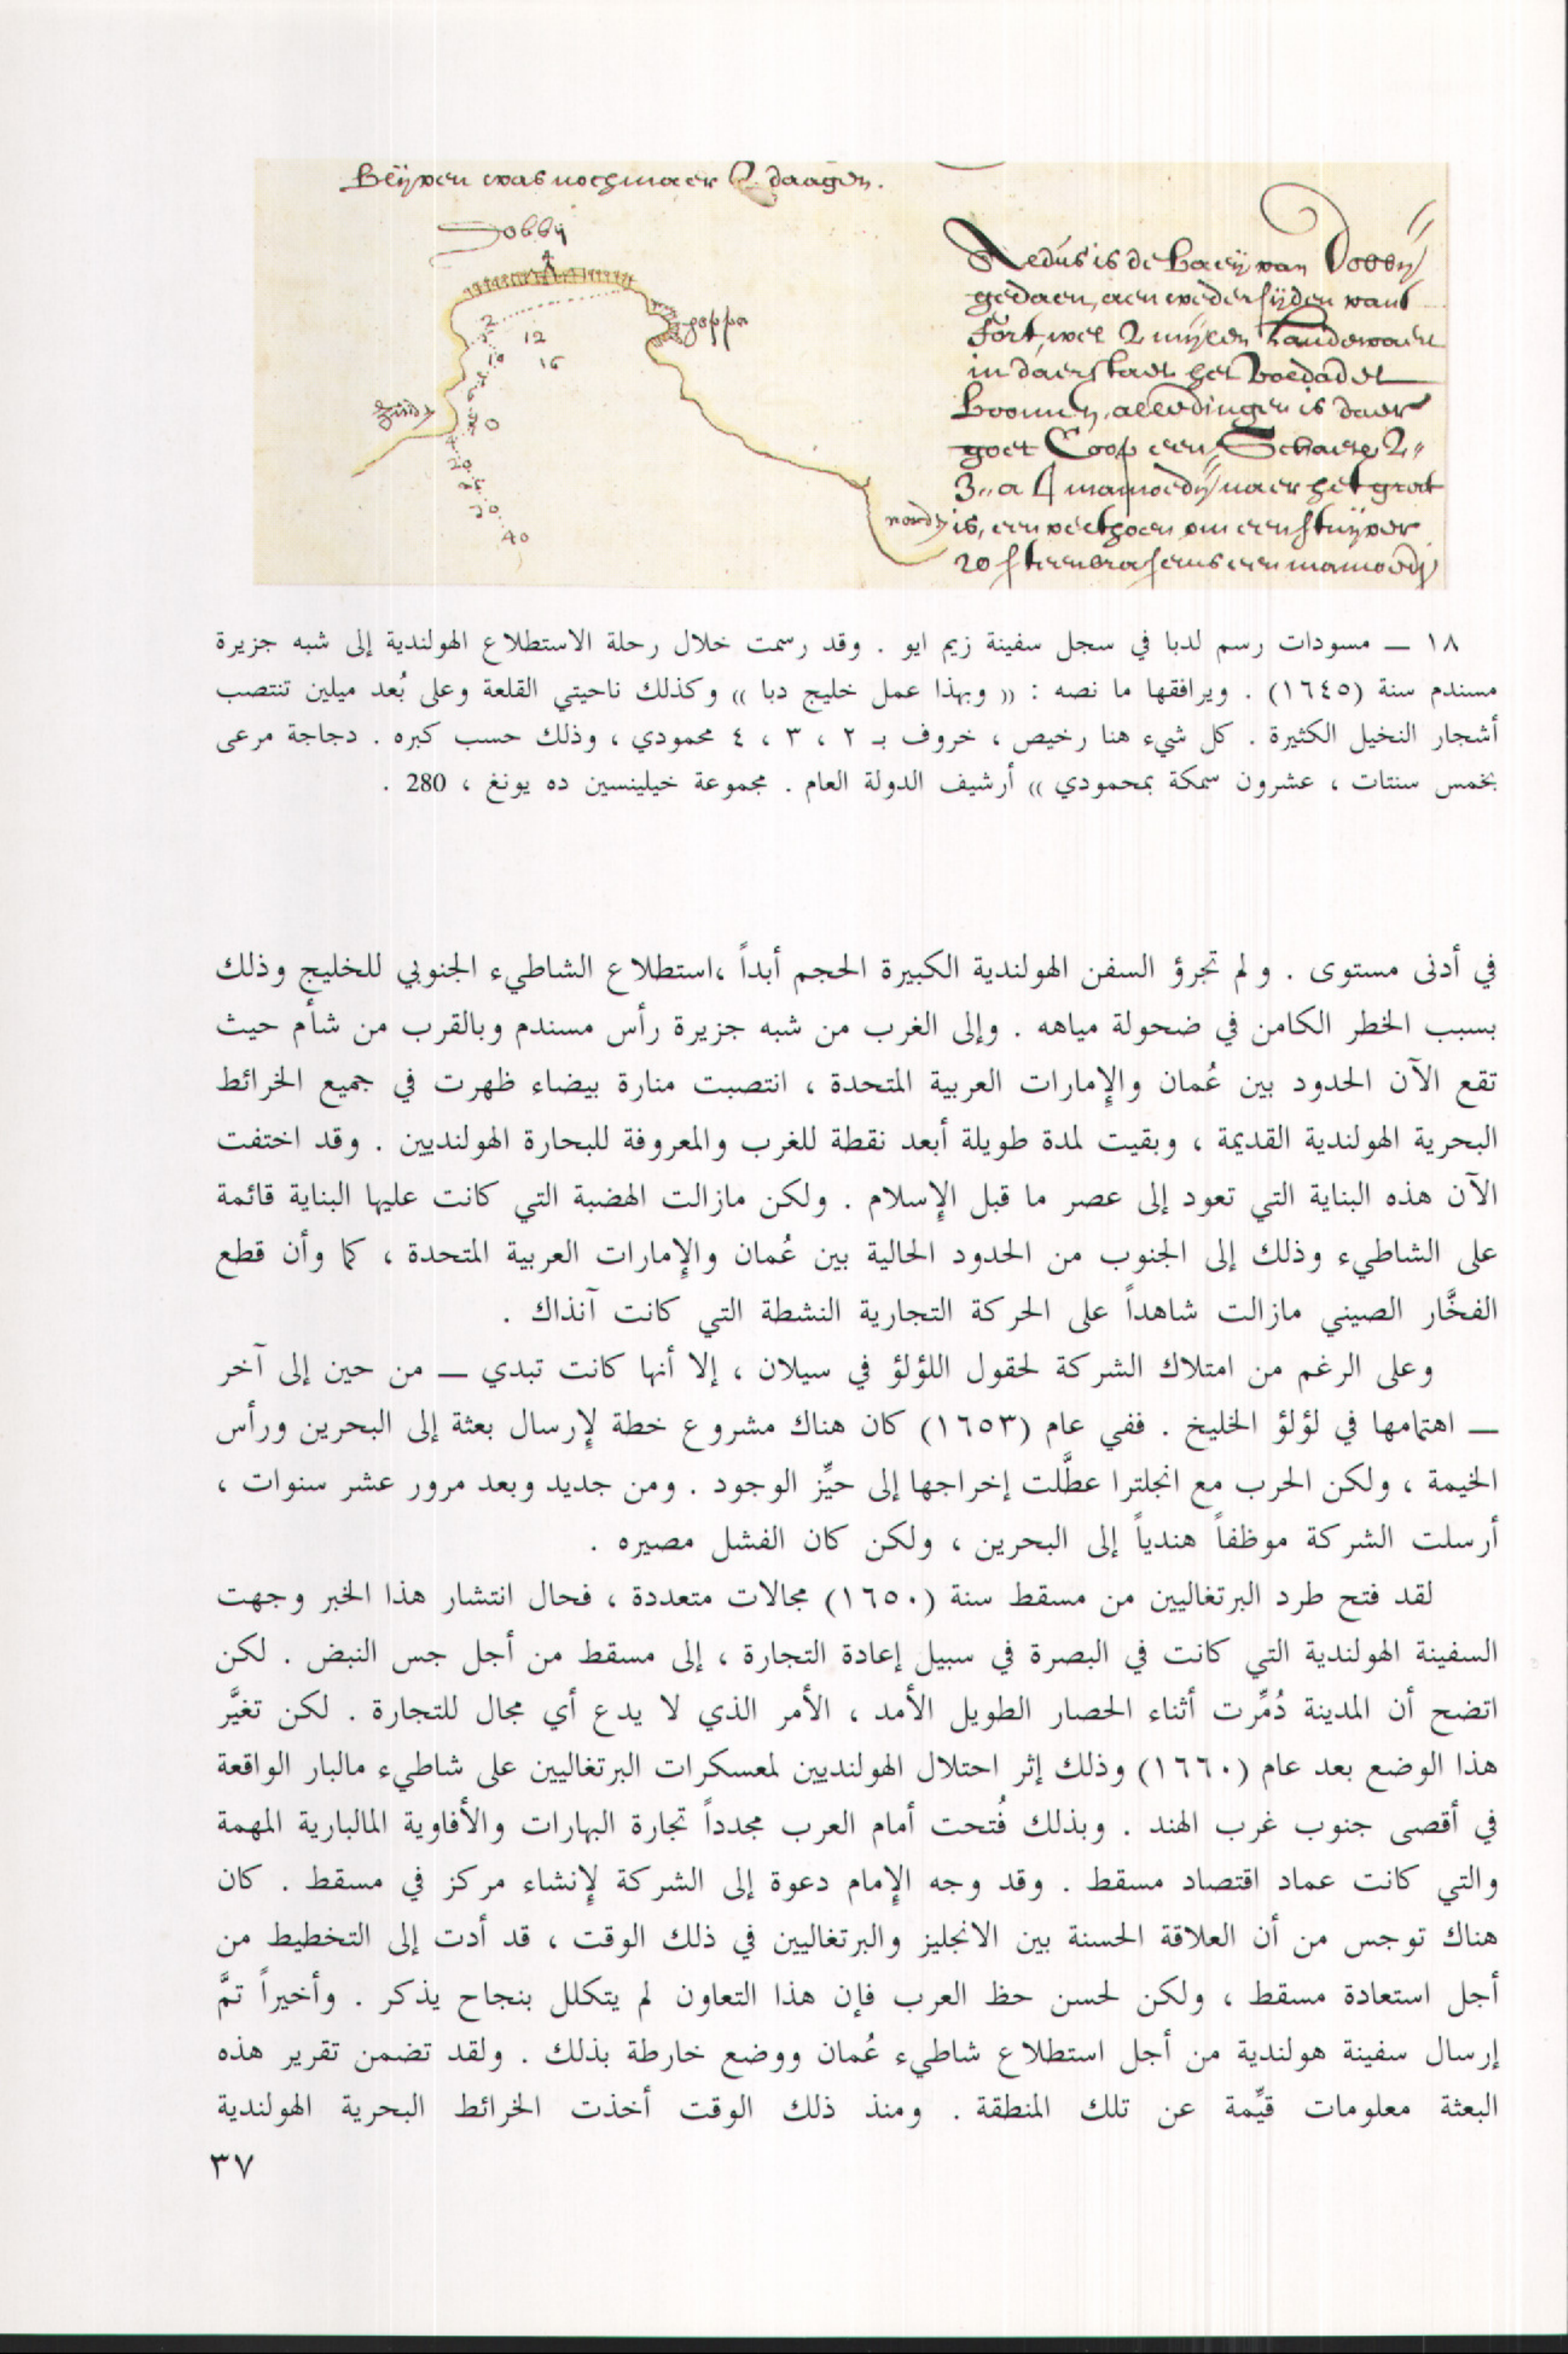 Blijven was noch maer 2 daagen.
Dobbij
2
5
12
10
16
zuijd
0
20
40
goppa
noord
Aedus is de baeij van Dobbij
gedaen, aen weder sijden vant
fort, wel 2 mijlen landewaert
in daer staet het vol dadel
boomen, alle dingen is daer
goet Coop een Schaep 2
3 a 4 mamoedij naer het groot
is, een veethoen om een stuijver
20 steenbrasems een mamoedij
١٨ ــ مسودات رسم لدبا في سجل سفينة زيم ايو . وقد رسمت خلال رحلة الاستطلاع الهولندية إلى شبه جزيرة
مسندم سنة (١٦٤٥) . ويرافقها ما نصه : (( وبهذا عمل خليج دبا )) وكذلك ناحيتي القلعة وعلى بُعد ميلين تنتصب
أشجار النخيل الكثيرة . كل شيء هنا رخيص ، خروف بـ ٢ ، ٣ ، ٤ محمودي ، وذلك حسب كبره . دجاجة مرعى
بخمس سنتات ، عشرون سمكة بمحمودي )) أرشيف الدولة العام . مجموعة خيلينسين ده يونغ ، 280 .
في أدنى مستوى . ولم تجرؤ السفن الهولندية الكبيرة الحجم أبداً ،استطلاع الشاطيء الجنوبي للخليج وذلك
بسبب الخطر الكامن في ضحولة مياهه . وإلى الغرب من شبه جزيرة رأس مسندم وبالقرب من شأم حيث
تقع الآن الحدود بين عُمان والإمارات العربية المتحدة ، انتصبت منارة بيضاء ظهرت في جميع الخرائط
البحرية الهولندية القديمة ، وبقيت لمدة طويلة أبعد نقطة للغرب والمعروفة للبحارة الهولنديين . وقد اختفت
الآن هذه البناية التي تعود إلى عصر ما قبل الإسلام . ولكن مازالت الهضبة التي كانت عليها البناية قائمة
على الشاطيء وذلك إلى الجنوب من الحدود الحالية بين عُمان والإمارات العربية المتحدة ، كما وأن قطع
الفخَّار الصيني مازالت شاهداً على الحركة التجارية النشطة التي كانت آنذاك .
وعلى الرغم من امتلاك الشركة لحقول اللؤلؤ في سيلان ، إلا أنها كانت تبدي ــ من حين إلى آخر
ــ اهتمامها في لؤلؤ الخليخ . ففي عام (١٦٥٣) كان هناك مشروع خطة لإرسال بعثة إلى البحرين ورأس
الخيمة ، ولكن الحرب مع انجلترا عطَّلت إخراجها إلى حيِّز الوجود . ومن جديد وبعد مرور عشر سنوات ،
أرسلت الشركة موظفاً هندياً إلى البحرين ، ولكن كان الفشل مصيره .
لقد فتح طرد البرتغاليين من مسقط سنة (١٦٥٠) مجالات متعددة ، فحال انتشار هذا الخبر وجهت
السفينة الهولندية التي كانت في البصرة في سبيل إعادة التجارة ، إلى مسقط من أجل جس النبض . لكن
اتضح أن المدينة دُمِّرت أثناء الحصار الطويل الأمد ، الأمر الذي لا يدع أي مجال للتجارة . لكن تغيَّر
هذا الوضع بعد عام (١٦٦٠) وذلك إثر احتلال الهولنديين لمعسكرات البرتغاليين على شاطيء مالبار الواقعة
في أقصى جنوب غرب الهند . وبذلك فُتحت أمام العرب مجدداً تجارة البهارات والأفاوية المالبارية المهمة
والتي كانت عماد اقتصاد مسقط . وقد وجه الإمام دعوة إلى الشركة لإنشاء مركز في مسقط . كان
هناك توجس من أن العلاقة الحسنة بين الانجليز والبرتغاليين في ذلك الوقت ، قد أدت إلى التخطيط من
أجل استعادة مسقط ، ولكن لحسن حظ العرب فإن هذا التعاون لم يتكلل بنجاح يذكر . وأخيراً تمَّ
إرسال سفينة هولندية من أجل استطلاع شاطيء عُمان ووضع خارطة بذلك . ولقد تضمن تقرير هذه
البعثة معلومات قيِّمة عن تلك المنطقة . ومنذ ذلك الوقت أخذت الخرائط البحرية الهولندية
٣٧